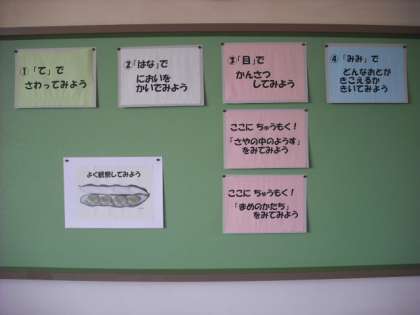 ①「て」で
さわってみよう
②「はな」で
においを
かいでみよう
③「目」で
かんさつ
してみよう
④「みみ」で
どんなおとが
きこえるか
きいてみよう
ここに ちゅうもく！
「さやの中のようす」
をみてみよう
ここに ちゅうもく！
「まめのかたち」
をみてみよう
よく観察してみよう